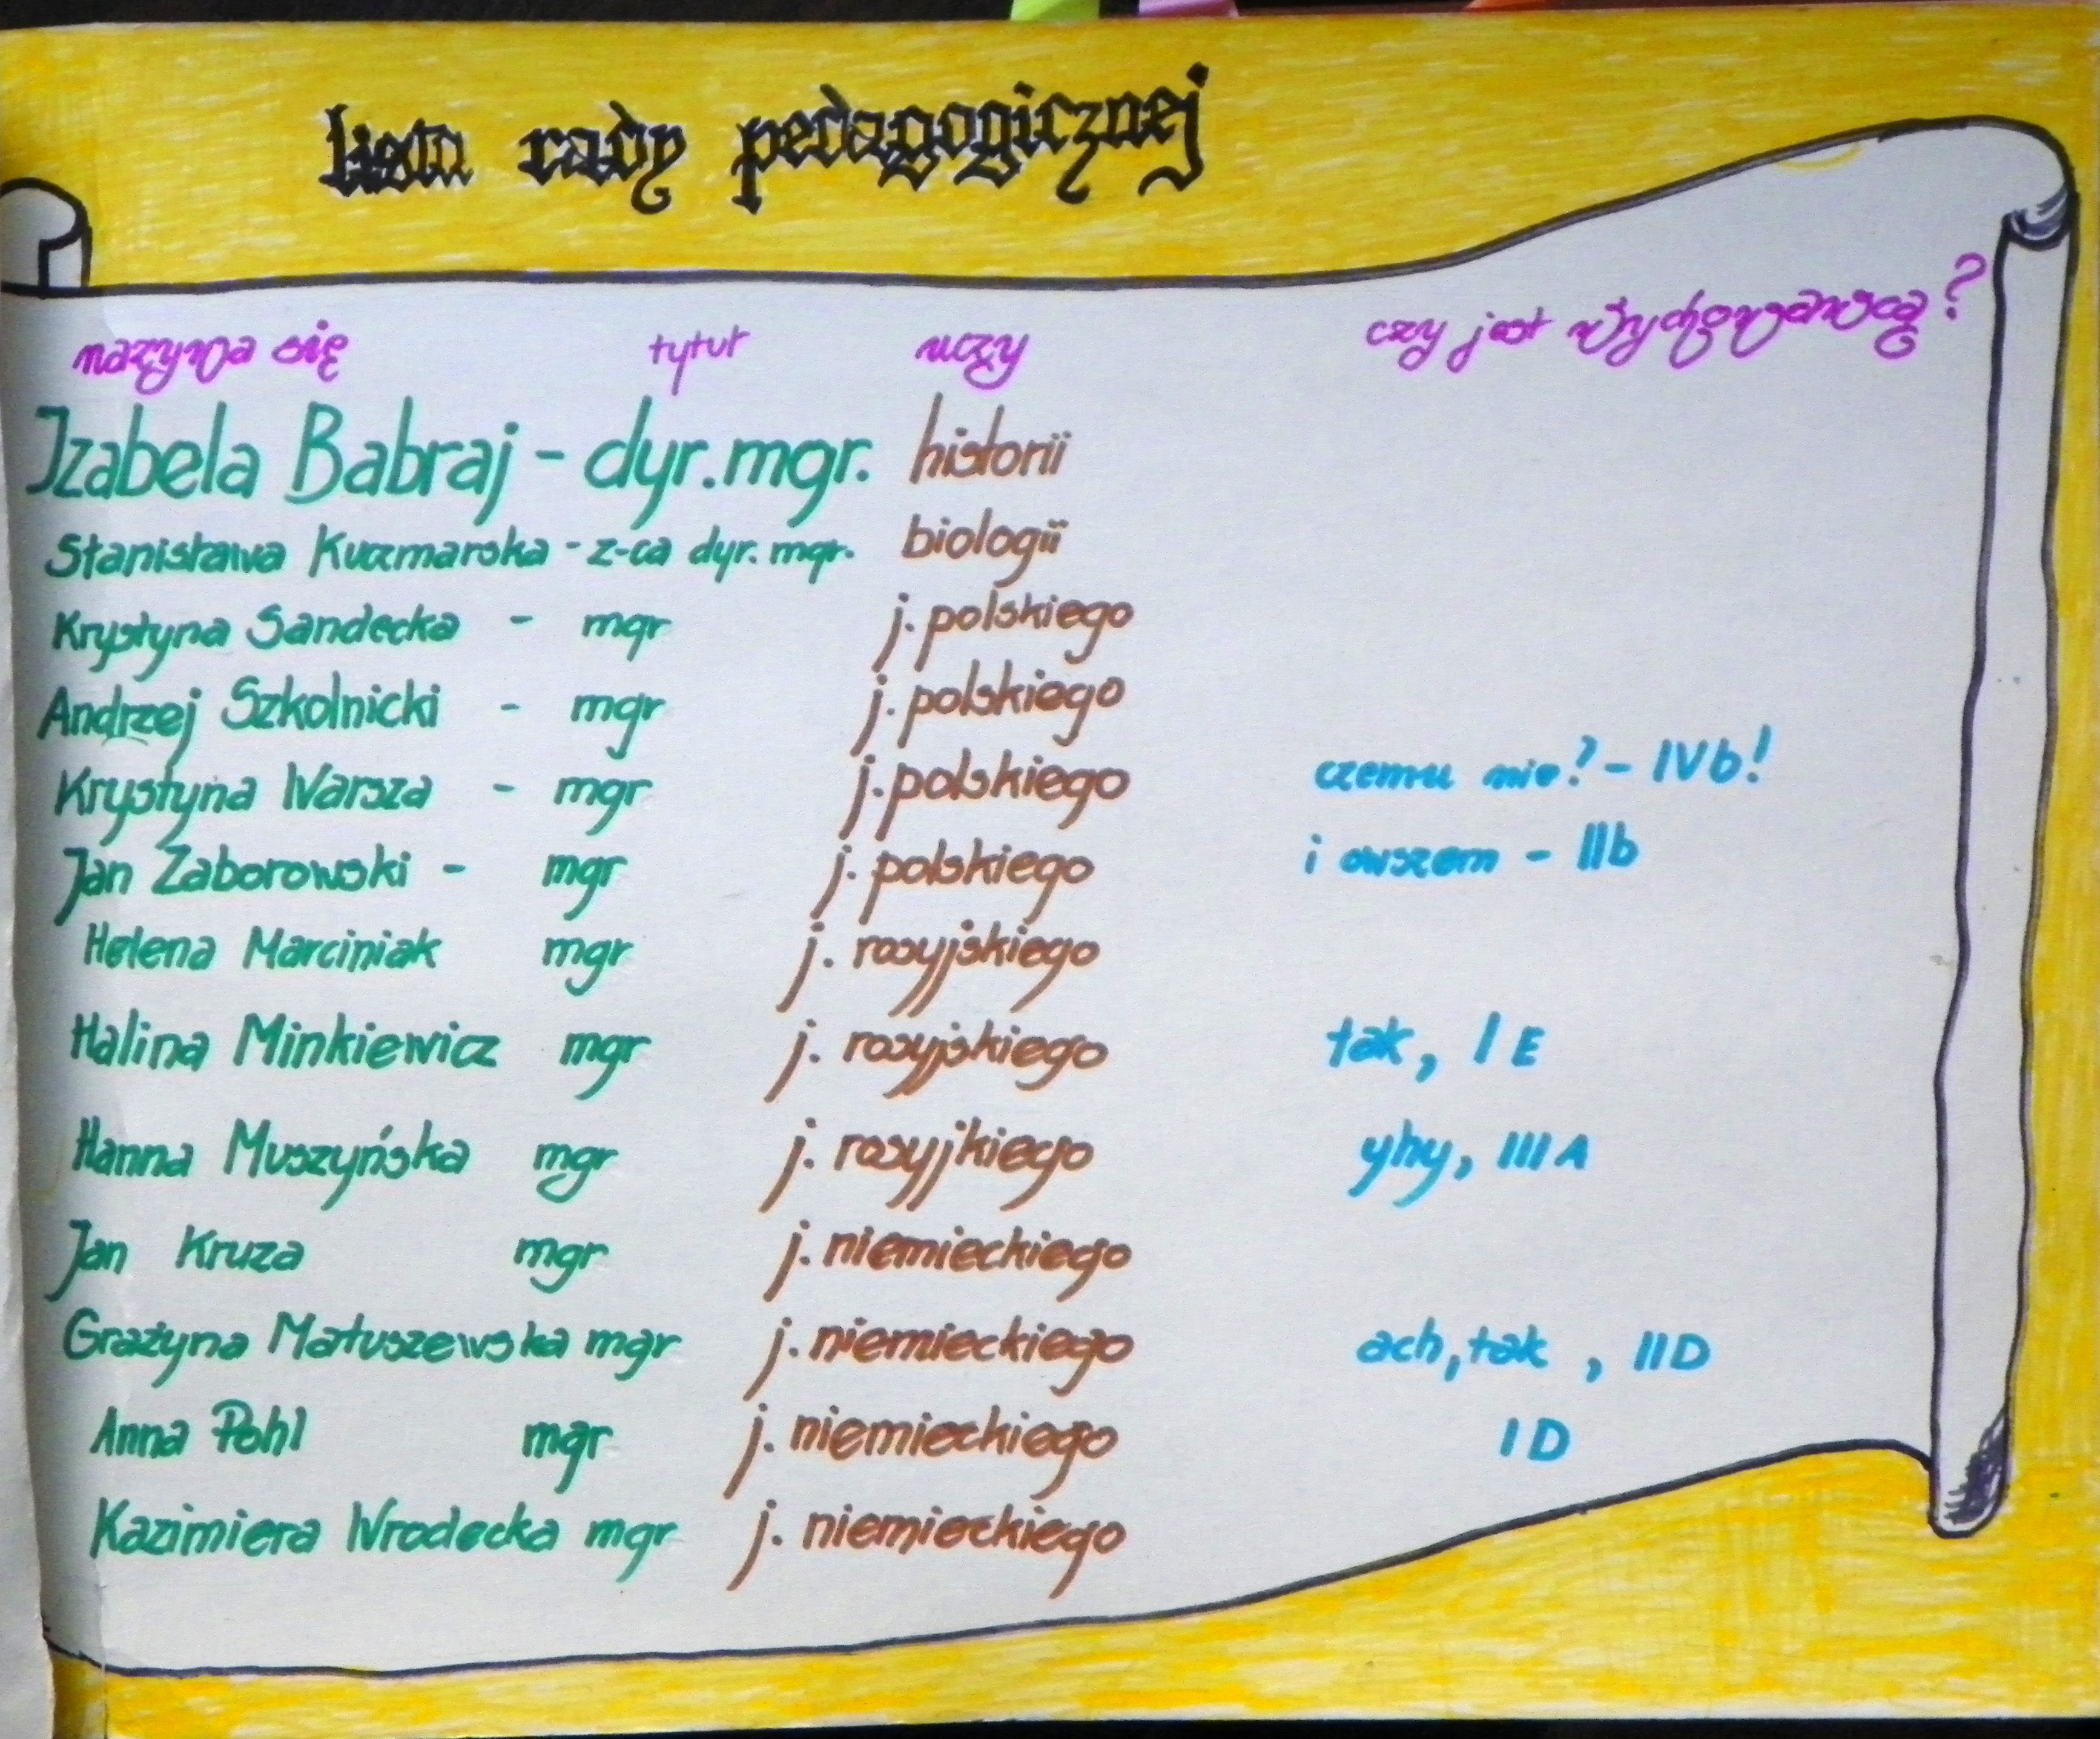 lista rady pedagogicznej
nazywa się tytuł uczy czy jest wychowawcą?
Izabela Babraj - dyr. mgr. historii
Stanisława Kuczmarska - z-ca dyr. mgr. biologii
Krystyna Sandecka - mgr j. polskiego
Andrzej Szkolnicki - mgr j. polskiego
Krystyna Warsza - mgr j. polskiego czemu nie? - IVb!
Jan Zaborowski - mgr j. polskiego i owszem - IIb
Helena Marciniak mgr j. rosyjskiego
Halina Minkiewicz mgr j. rosyjskiego tak, I E
Hanna Muszyńska mgr j. rosyjkiego yhy, III A
Jan Kruza mgr j. niemieckiego
Grażyna Matuszewska mgr j. niemieckiego ach, tak , II D
Anna Pohl mgr j. niemieckiego I D
Kazimiera Wrodecka mgr j. niemieckiego